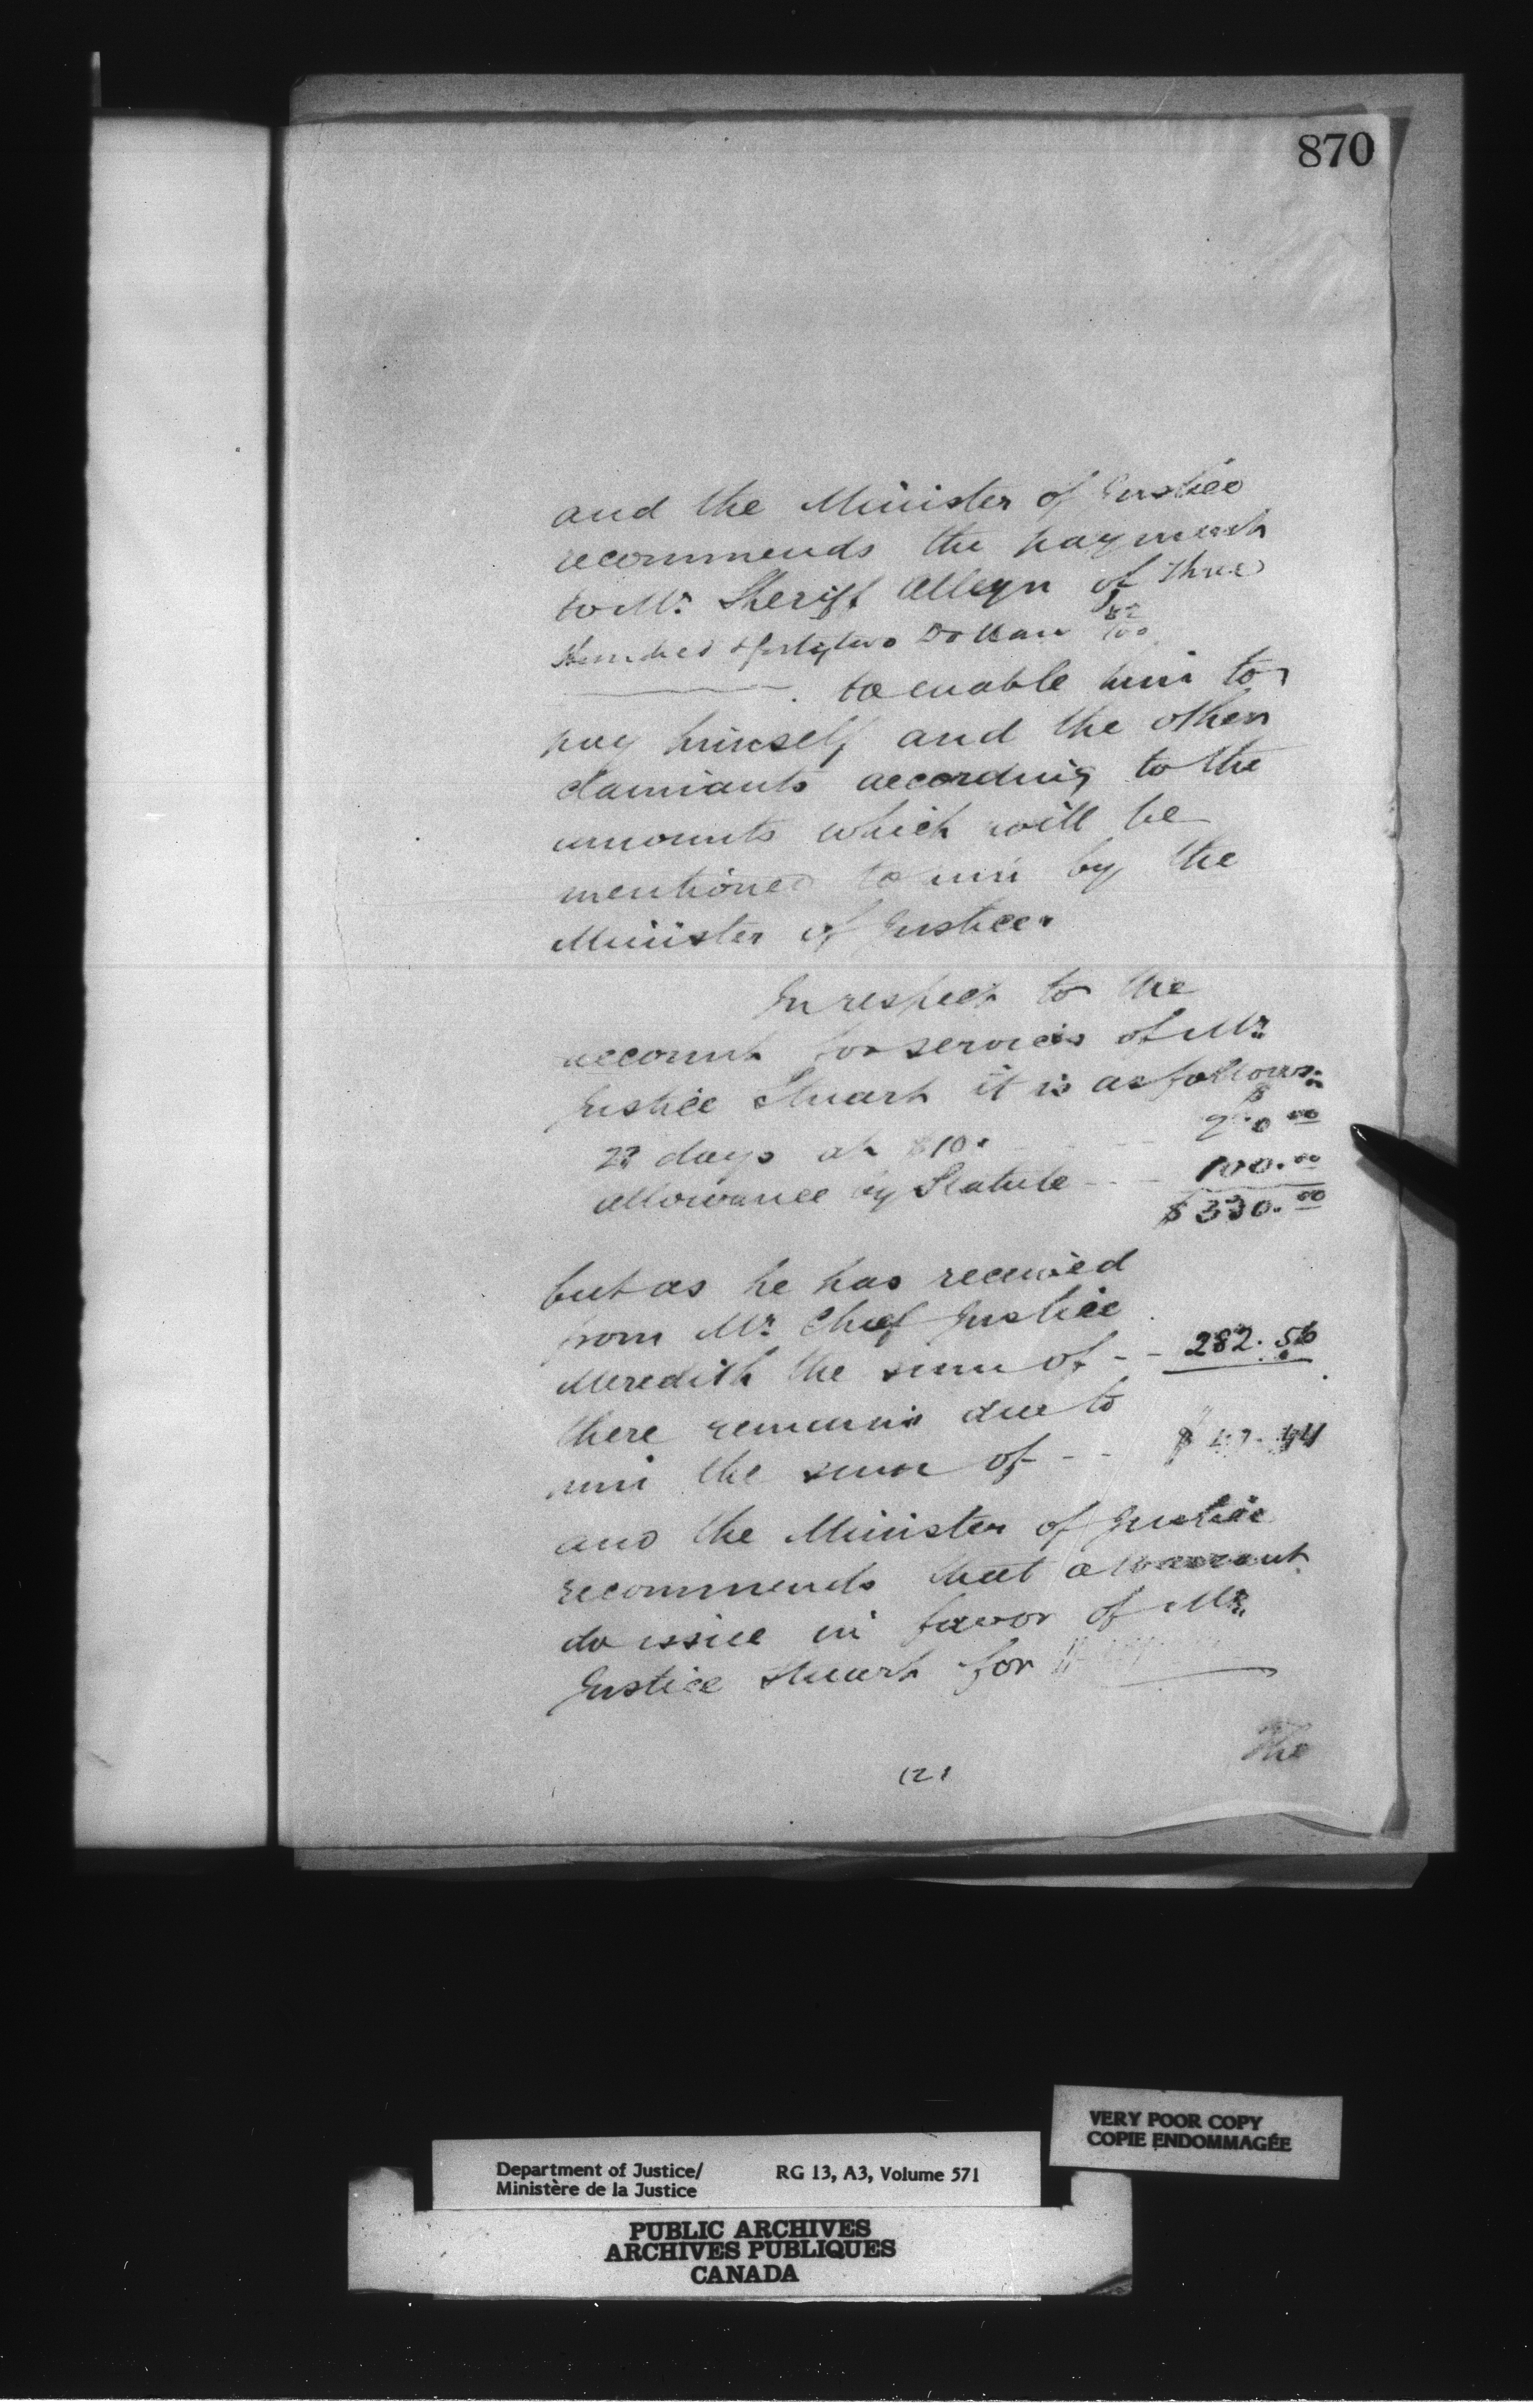 870
and the Minister of Justice
recommends the payment
to Mr. Sheriff Alleyn of Three
Hundred & forty two Dollars 82/100
to enable him to
pay himself and the other
claimants according to the
amounts which will be
mentioned to him by the
Minister of Justice.
In respect to the
account for services of Mr.
Justice Stuart it is as follows:
23 days at $10. $
allowance by Statute - - - 100.00
$330.00
but as he has received
from Mr. Chief Justice
Meredith the sum of - - 282.56
there remains due to
him the sum of - - $47.44
and the Minister of Justice
recommends that a warrant
do issue in favor of Mr.
Justice Stuart for
(2)
The
VERY POOR COPY
COPIE ENDOMMAGÉE
Department of Justice/ RG 13, A3, Volume 571
Ministère de la Justice
PUBLIC ARCHIVES
ARCHIVES PUBLIQUES
CANADA